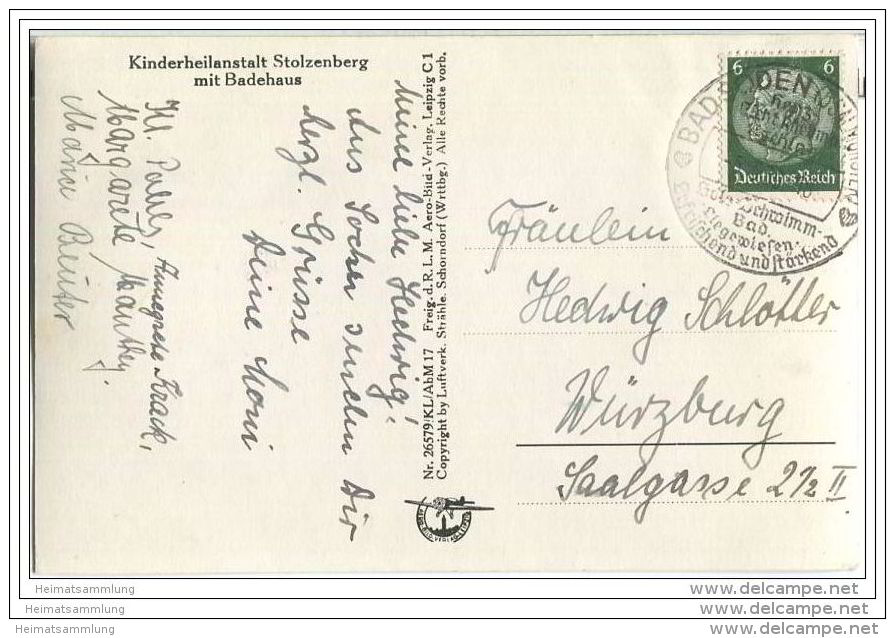 Kinderheilanstalt Stolzenberg
mit Badehaus
Meine liebe Hedwig!
Aus Soden senden Dir
herzl. Grüsse
Deine Moni
Annegrete Krack,
Margarete
Maria
Nr. 26579/KL/AbM 17 Freig. d. R. L. M. Aero-Bild-Verlag, Leipzig C 1
Copyright by Luftverk. Strähle, Schorndorf (Wrttbg.) Alle Rechte vorb.
6 6
Deutsches Reich
BAD
Schwimm-
Bad.
Liegewiesen.
Erfrischend und stärkend
Fräulein
Hedwig Schlötter
Würzburg
Saalgasse 2½ II
Heimatsammlung
Heimatsammlung
Heimatsammlung
www.delcampe.net
www.delcampe.net
www.delcampe.net